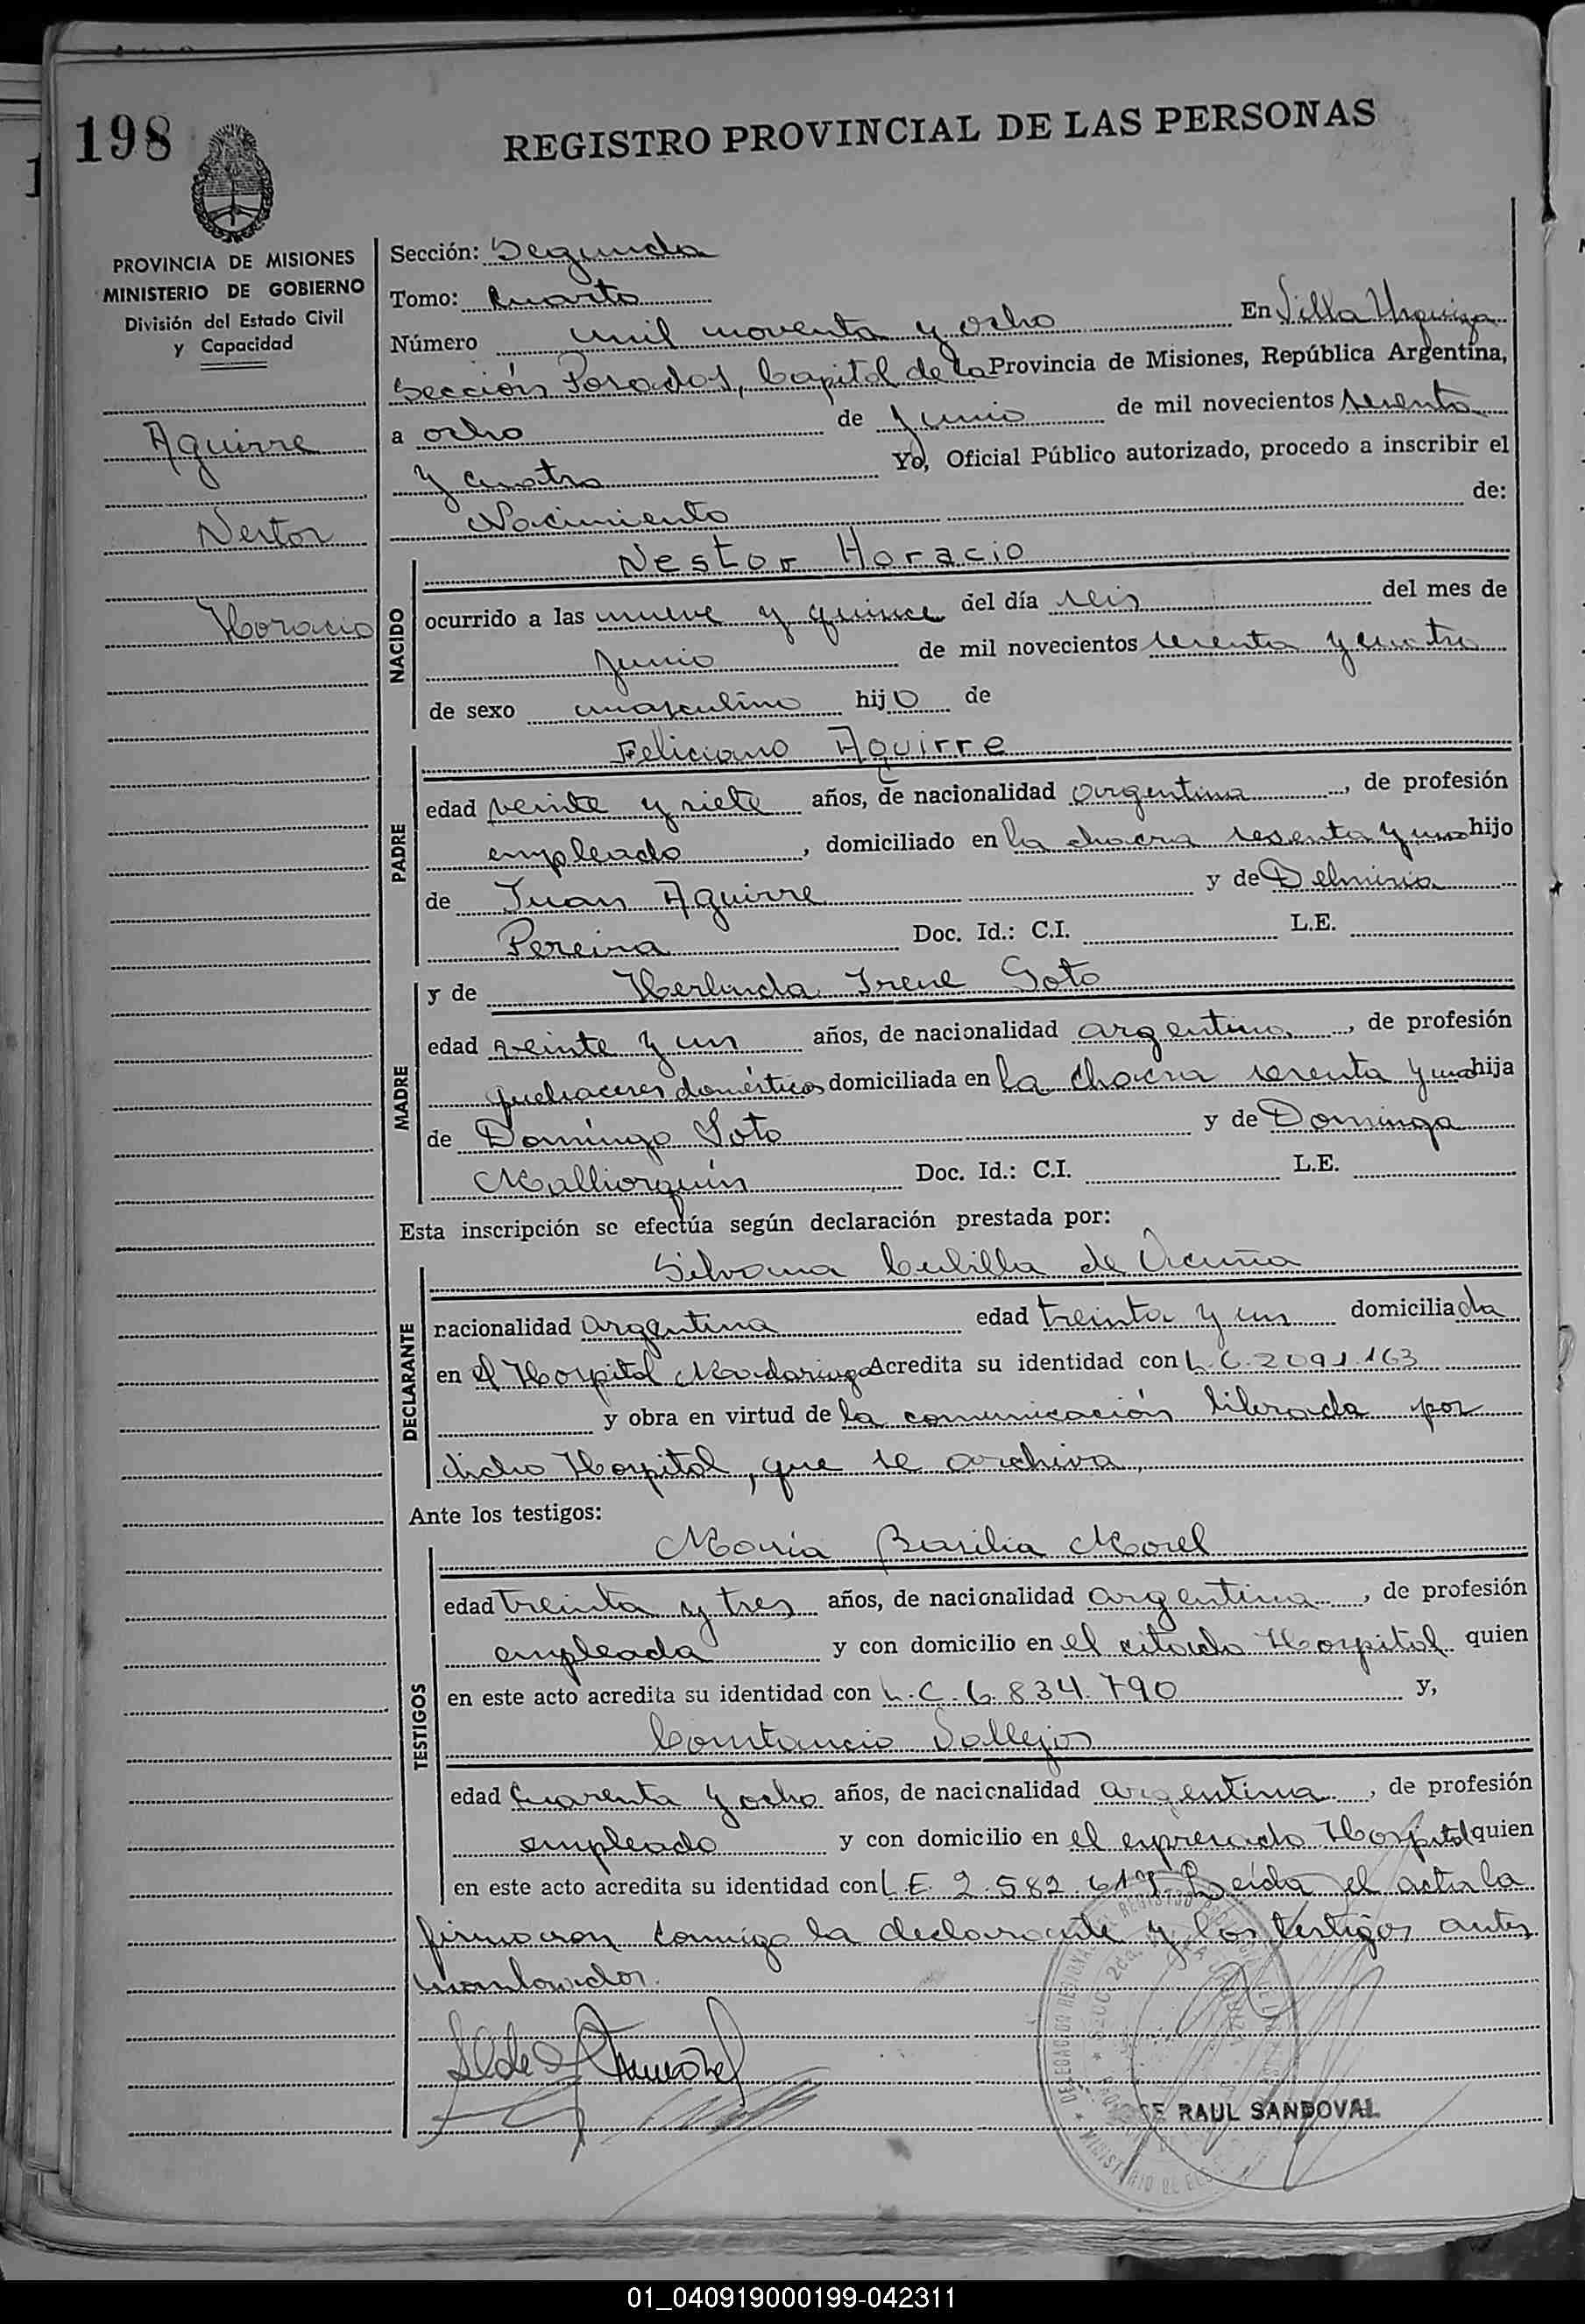 198
REGISTRO PROVINCIAL DE LAS PERSONAS
PROVINCIA DE MISIONES
MINISTERIO DE GOBIERNO
División del Estado Civil
y Capacidad
Aguirre
Nestor
Horacio
Sección: Segunda
Tomo: Cuarto
Número mil noventa y ocho En Villa Urquiza
Sección Posadas, Capital de la Provincia de Misiones, República Argentina,
a ocho de Junio de mil novecientos sesenta
y cuatro Yo, Oficial Público autorizado, procedo a inscribir el
Nacimiento de:
NACIDO
Nestor Horacio
ocurrido a las nueve y quince del día seis del mes de
Junio de mil novecientos sesenta y cuatro
de sexo masculino hijo de
PADRE
Feliciano Aguirre
edad veinte y siete años, de nacionalidad argentina, de profesión
empleado, domiciliado en la chacra sesenta y uno hijo
de Juan Aguirre y de Delmiria
Pereira Doc. Id.: C.I. L.E.
MADRE
y de Herlinda Irene Soto
edad veinte y un años, de nacionalidad argentina, de profesión
quehaceres domésticos domiciliada en la chacra sesenta y uno hija
de Domingo Soto y de Dominga
Malliorquin Doc. Id.: C.I. L.E.
Esta inscripción se efectúa según declaración prestada por:
DECLARANTE
Silvana de Acuña
nacionalidad argentina edad treinta y un domiciliada
en el Hospital Madariaga Acredita su identidad con L.C. 2091.163
y obra en virtud de la comunicación librada por
dicho Hospital, que se archiva
Ante los testigos:
TESTIGOS
María Basilia Morel
edad treinta y tres años, de nacionalidad argentina, de profesión
empleada y con domicilio en el citado Hospital quien
en este acto acredita su identidad con L.C. 6.834.790 y,
Constancio Vallejos
edad cuarenta y ocho años, de nacionalidad argentina, de profesión
empleado y con domicilio en el expresado Hospital quien
en este acto acredita su identidad con L.E. 2.582. Leída el acta la
firmaron conmigo la declarante y los testigos antes
nombrados.
RAUL SANDOVAL
01_040919000199-042311